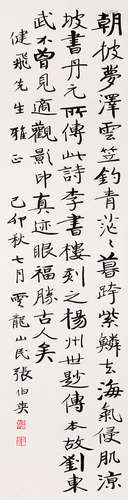 朝披夢澤雲笠釣青茫〻暮跨紫鱗去海氣侵肌涼
坡書丹元所傳此詩李書樓刻之楊州世尠傳本故劉東
武不曾見適觀影印真迹眼福勝古人矣
健飛先生雅正 己卯秋七月雲龍山民張伯英